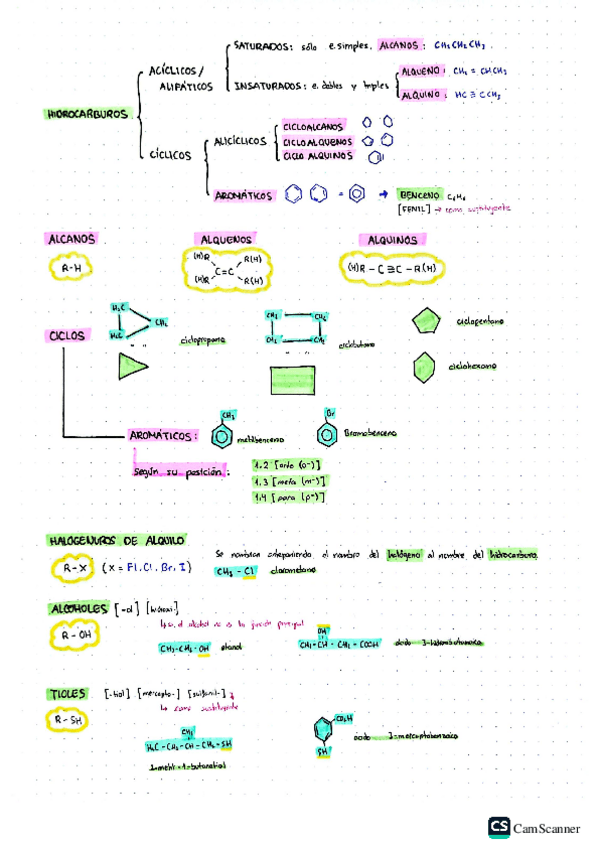 SATURADOS: sólo e. simples. ALCANOS: CH3CH2CH3
ACÍCLICOS/
ALIFÁTICOS
INSATURADOS: e. dobles y triples
ALQUENO: CH2 = CHCH3
ALQUINO: HC ≡ CCH3
HIDROCARBUROS
CÍCLICOS
ALICÍCLICOS
CICLOALCANOS
CICLOALQUENOS
CICLO ALQUINOS
AROMÁTICOS = → BENCENO C6H6
[FENIL] → como sustituyente
ALCANOS ALQUENOS ALQUINOS
R-H
(H)R R(H)
C=C
(H)R R(H)
(H)R - C≡C - R(H)
CICLOS
H2C
CH2
H2C
ciclopropano
CH2 CH2
CH2 CH2
ciclobutano
ciclopentano
ciclohexano
AROMÁTICOS:
CH3
metilbenceno
Br
Bromobenceno
según su posición:
1,2 [orto (o-)]
1,3 [meta (m-)]
1,4 [para (p-)]
HALOGENUROS DE ALQUILO
R-X (X = Fl, Cl, Br, I)
Se nombran anteponiendo el nombre del halógeno al nombre del hidrocarburo
CH3 - Cl clorometano
ALCOHOLES [-ol] [hidroxi-]
si el alcohol no es la función principal
R-OH
CH3-CH2-OH etanol
OH
CH3-CH-CH2-COOH ácido 3-hidroxibutanoico
TIOLES [-tiol] [mercapto-] [sulfanil-]
como sustituyente
R-SH
CH3
H3C-CH2-CH-CH2-SH
2-metil-1-butanotiol
CO2H
SH
ácido 3-mercaptobenzoico
CS CamScanner